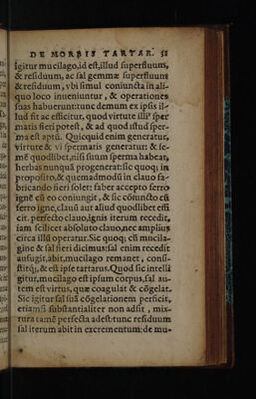 DE MORBIS TARTAR. 51
igitur mucilago, id est, illud superfluum,
& residuum, ac sal gemmæ superfluum
& residuum, vbi simul coniuncta in ali-
quo loco inueniuntur, & operationes
suas habuerunt: tunc demum ex ipsis il-
lud fit ac efficitur, quod virtute illiꝰ sper
matis fieri potest, & ad quod istud sper-
ma est aptū. Quicquid enim generatur,
virtute & vi spermatis generatur: & se-
mē quodlibet, nisi suum sperma habeat,
herbas nunquā progenerat: sic quoq; in
proposito, & quemadmodū in clauo fa-
bricando fieri solet: faber accepto ferro
ignē cū eo coniungit, & sic coniūcto cū
ferro igne, clauū aut aliud quodlibet effi
cit. perfecto clauo, ignis iterum recedit,
iam scilicet absoluto clauo, nec amplius
circa illū operatur. Sic quoq; cū mucila-
gine & sal fieri dicimus: sal enim recedit
aufugit, abit, mucilago remanet, consi-
stitq́;, & est ipse tartarus. Quod sic intelli
gitur, mucilago est ipsum corpus, sal au-
tem est virtus, quæ coagulat & cōgelat.
Sic igitur sal suā cōgelationem perficit,
etiamsi substantialiter non adsit, mix-
tura tamē perfecta adest: tunc residuum
sal iterum abit in excrementum: de mu-